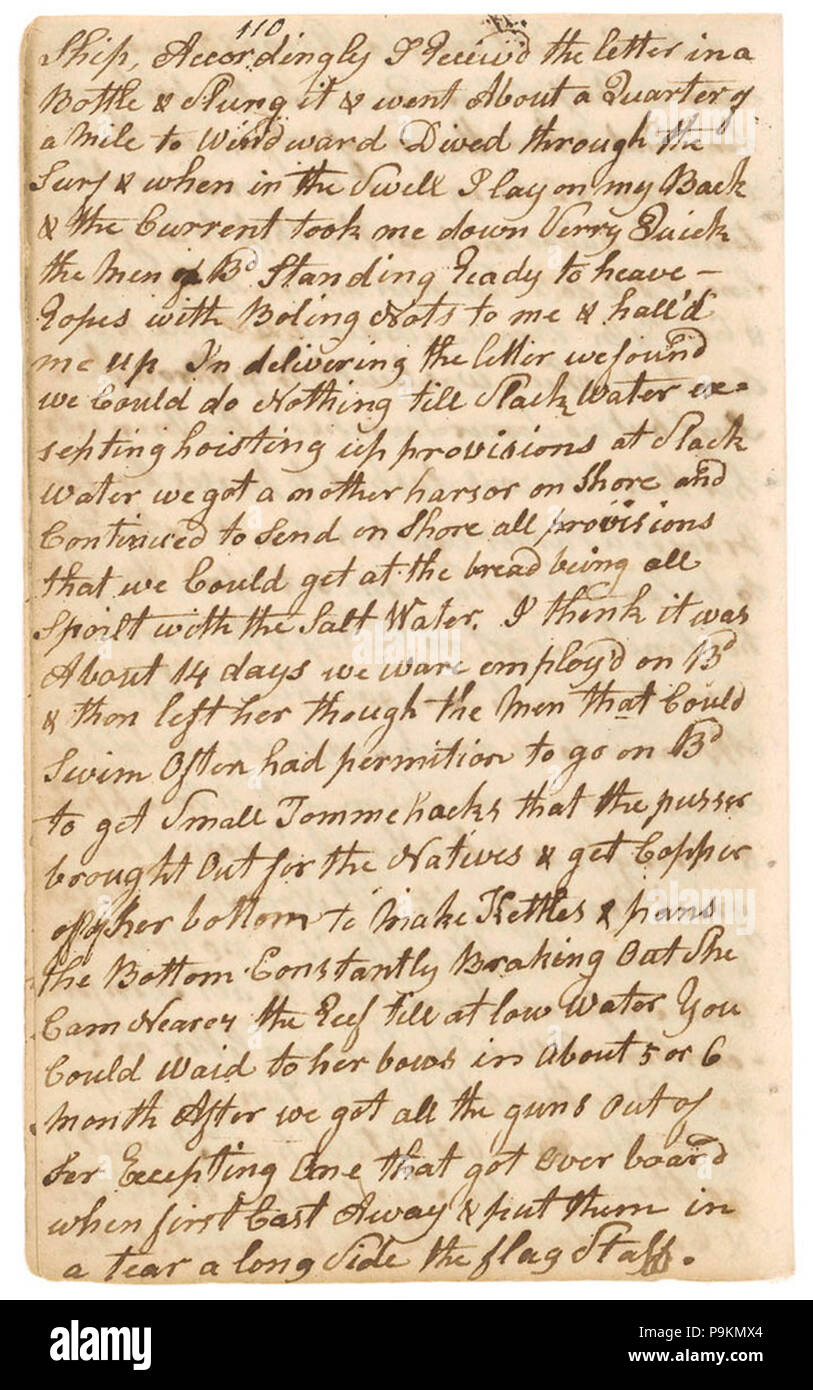 110
Ship, Accordingly I Receiv'd the letter in a
Bottle & Slung it & went About a Quarter of
a Mile to Windward Dived through the
Surf & when in the Swell I lay on my Back
& the Current took me down Verry Quick
the Men of Bd Standing Ready to heave –
Ropes with Boling Nots to me & hall'd
me up In delivering the letter we found
we Could do Nothing till Slack Water ex=
septing hoisting up provisions at Slack
Water we got a nother harsor on Shore and
Continued to Send on Shore all provisions
that we Could get at the bread being all
Spoilt with the Salt Water. I think it was
About 14 days we ware employ'd on Bd
& thon left her though the Men that Could
Swim Often had permition to go on Bd
to get Small Tommehacks that the pusser
brought Out for the Natives & get Copper
off of her bottom to Make Kettles & pans
the Bottom Constantly Braking Out She
Cam Nearer the Reef till at low Water You
Could Waid to her bows in About 5 or 6
Month After we got all the guns Out of
her Excepting One that got Over board
when first Cast Away & put them in
a tear a long Side the flag Staff.
alamy
alamy
alamy
alamy
alamy
Image ID: P9KMX4
www.alamy.com